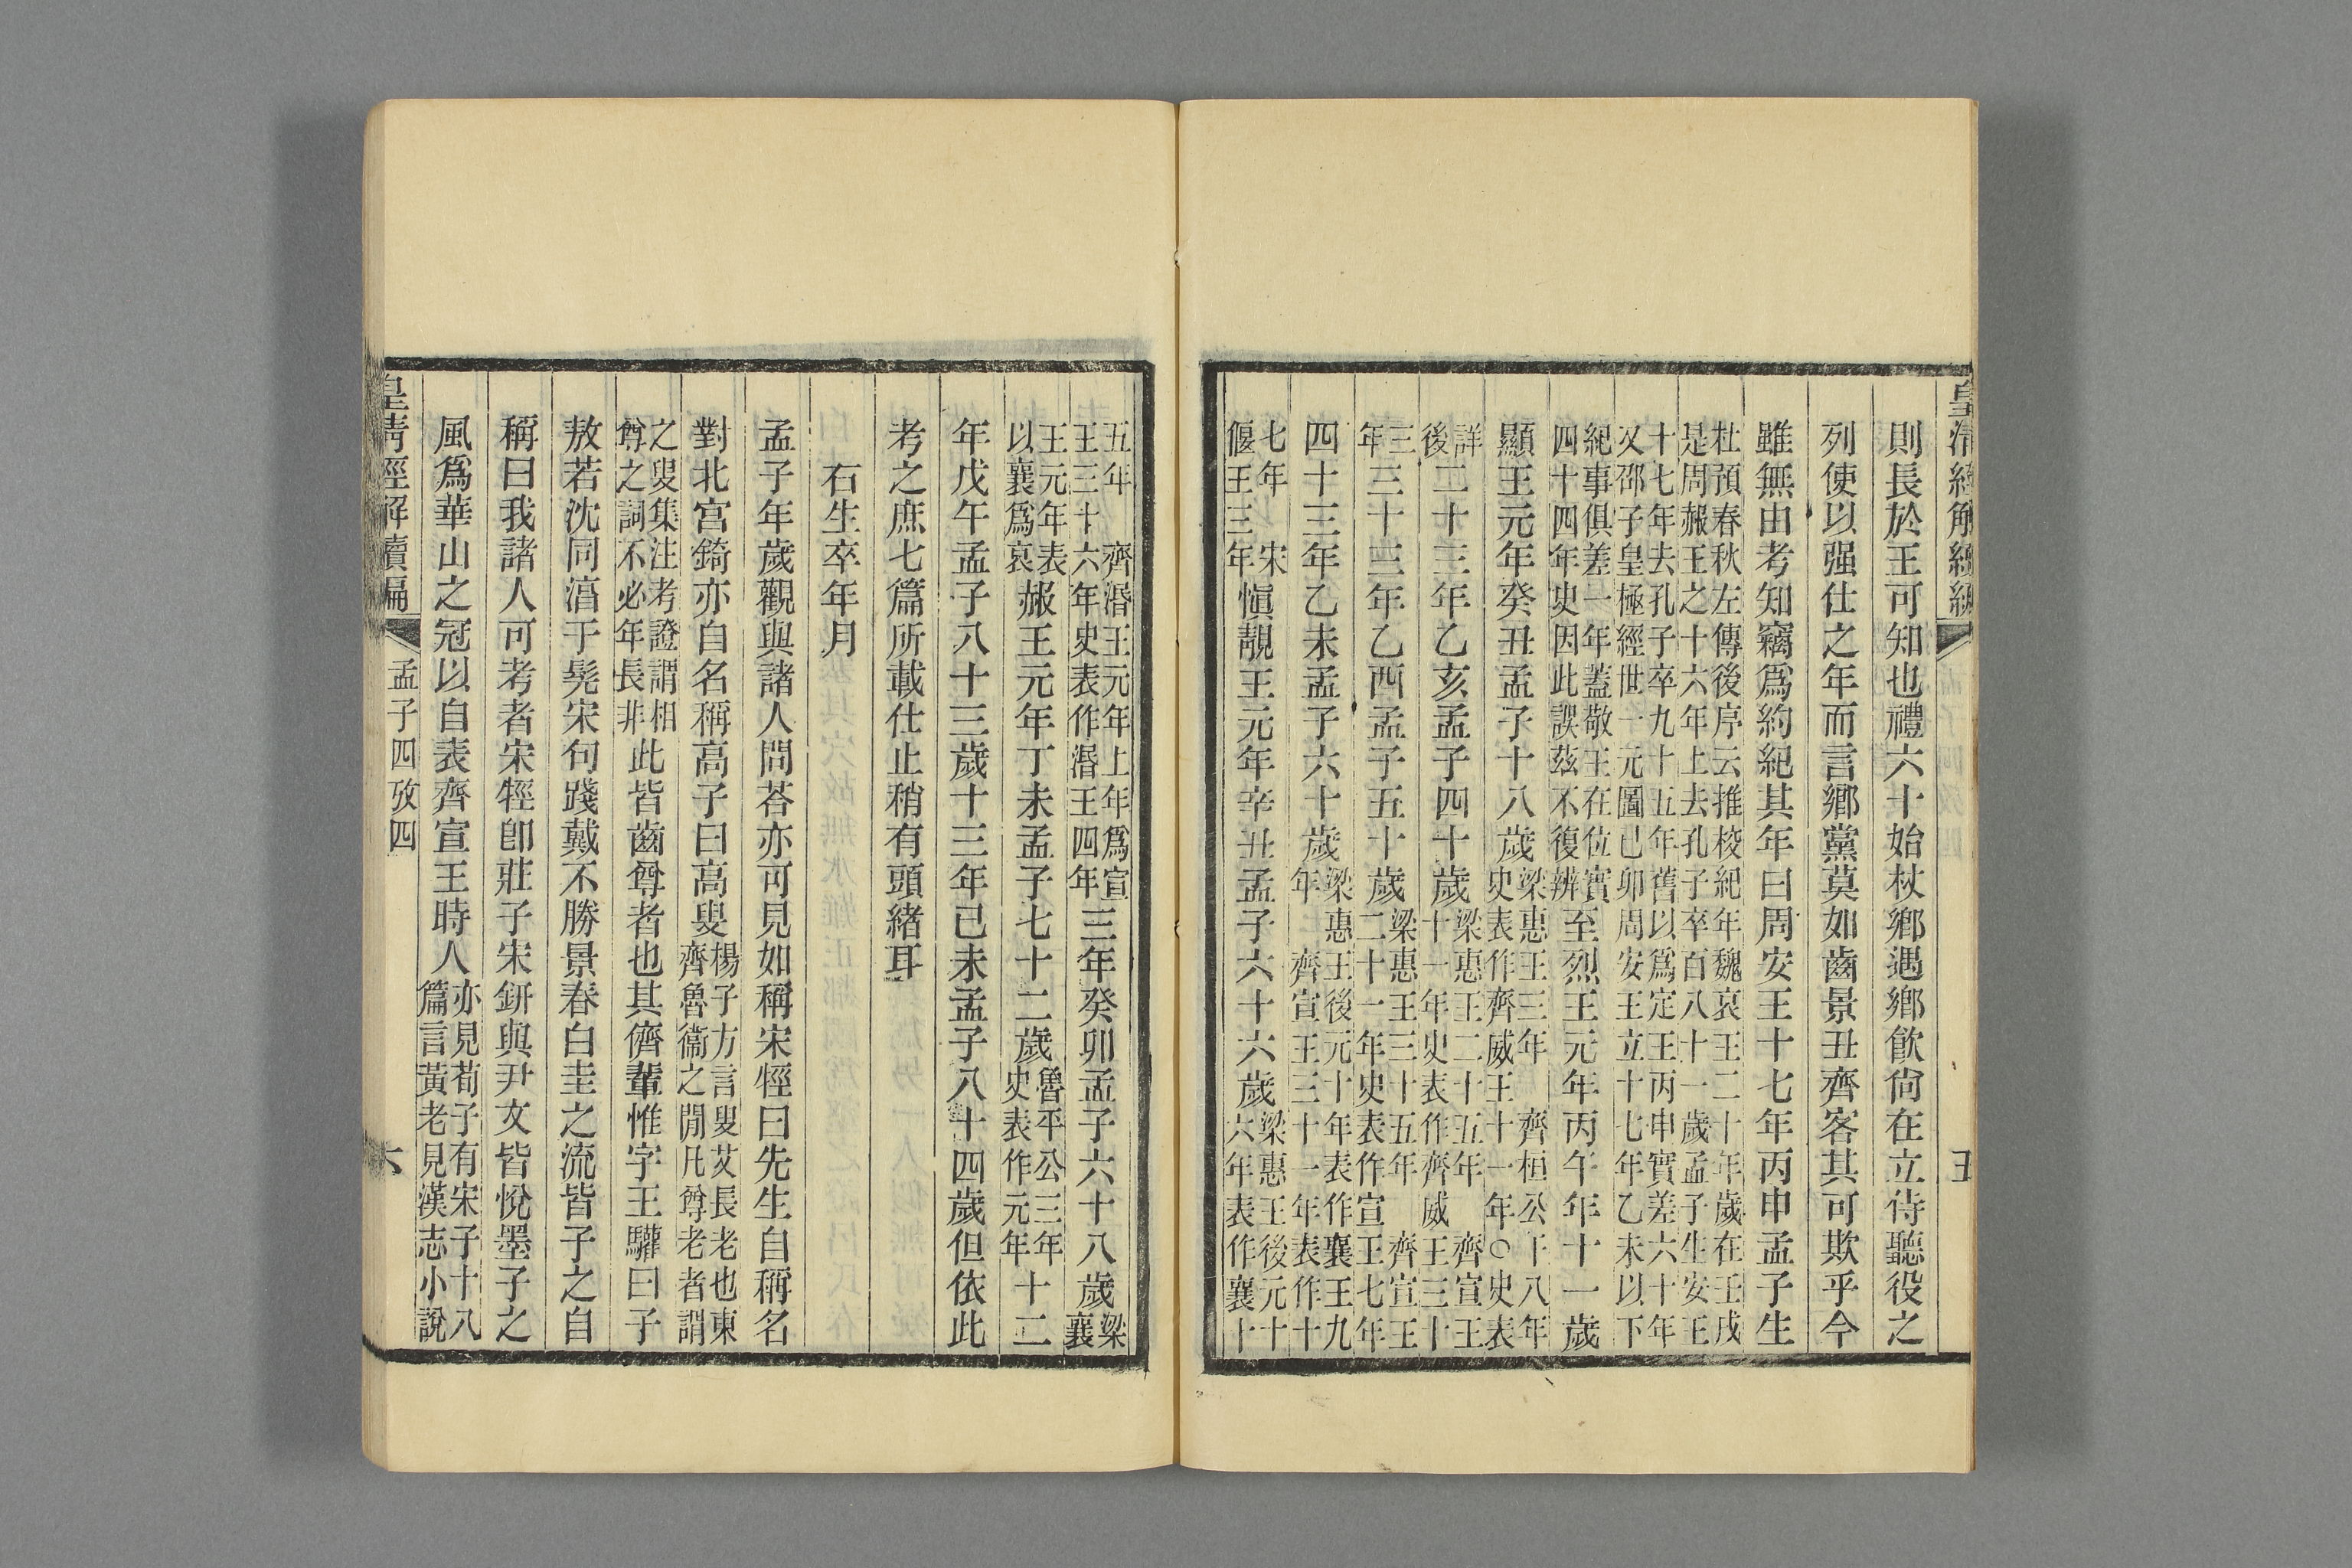 皇清經解續編
五
則長於王可知也禮六十始杖鄉遇鄉飮尙在立待聽役之
列使以强仕之年而言鄉黨莫如齒景丑齊客其可欺乎今
雖無由考知竊爲約紀其年曰周安王十七年丙申孟子生
杜預春秋左傳後序云推校紀年魏哀王二十年歲在壬戌
是周赧王之十六年上去孔子卒百八十一歲孟子生安王
十七年去孔子卒九十五年舊以爲定王丙申實差六十年
又邵子皇極經世一元圖已卯周安王立十七年乙未以下
紀事俱差一年蓋敬王在位實
四十四年史因此誤茲不復辨
至烈王元年丙午年十一歲
顯王元年癸丑孟子十八歲
梁惠王三年 齊桓公十八年
史表作齊威王十一年○史表
詳
後
二十三年乙亥孟子四十歲
梁惠王二十五年 齊宣王
十一年史表作齊威王三十
三
年
三十三年乙酉孟子五十歲
梁惠王三十五年 齊宣王
二十一年史表作宣王七年
四十三年乙未孟子六十歲
梁惠王後元十年表作襄王九
年 齊宣王三十一年表作十
七年 宋
偃王三年
愼靚王元年辛丑孟子六十六歲
梁惠王後元十
六年表作襄十
五年 齊湣王元年上年爲宣
王三十六年史表作湣王四年
三年癸卯孟子六十八歲
梁
襄
王元年表
以襄爲哀
赧王元年丁未孟子七十二歲
魯平公三年
史表作元年
十二
年戊午孟子八十三歲十三年己未孟子八十四歲但依此
考之庶七篇所載仕止稍有頭緒耳
石生卒年月
孟子年歲觀與諸人問荅亦可見如稱宋牼曰先生自稱名
對北宮錡亦自名稱高子曰高叟
楊子方言叟艾長老也東
齊魯衞之閒凡尊老者謂
之叟集注考證謂相
尊之詞不必年長非
此皆齒尊者也其儕輩惟字王驩曰子
敖若沈同淳于髡宋句踐戴不勝景春白圭之流皆子之自
稱曰我諸人可考者宋牼卽莊子宋鈃與尹文皆悅墨子之
風爲華山之冠以自表齊宣王時人
亦見荀子有宋子十八
篇言黃老見漢志小說
皇清經解續編
孟子四攷四
六